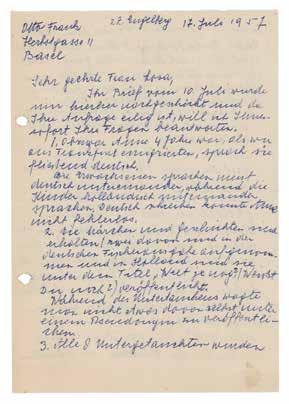 Otto Frank
Herbstgasse 11
Basel
zZ Engelberg 17. Juli 1957
Sehr geehrte Frau Losa,
Ihr Brief vom 10. Juli wurde
mir hierher nachgeschickt und da
Ihre Anfrage eilig ist, will ich Ihnen
sofort Ihre Fragen beantworten.
1. Anne 4 Jahre war, als wir
aus Frankfurt emigrierten, sprach sie
fliessend deutsch.
Die Erwachsenen sprachen meist
deutsch untereinander, während die
Kinder holländisch miteinander
sprachen. Deutsch schreiben konnte Anne
nicht fehlerlos.
2. Die Märchen und Geschichten sind
erhalten. zwei davon sind in der
deutschen Fischerausgabe aufgenom-
men und in Holland sind sie
unter dem Titel, "Weet je nog?" (Weisst
Du noch?) veröffentlicht.
Während des Untertauchens wagte
man nicht etwas davon selbst unter
einem Pseudonym zu veröffentli-
chen.
3. Alle 8 Untergetauchten wurden